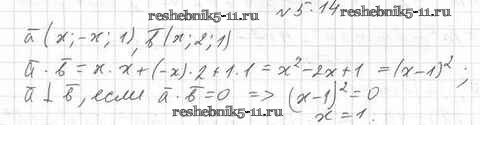 reshebnik5-11.ru
№5.14
reshebnik5-11.ru
a̅ (x; -x; 1), b̅ (x; 2; 1)
a̅ · b̅ = x · x + (-x) · 2 + 1 · 1 = x² - 2x + 1 = (x - 1)²;
a̅ ⊥ b̅, если a̅ · b̅ = 0 => (x - 1)² = 0
x = 1.
reshebnik5-11.ru